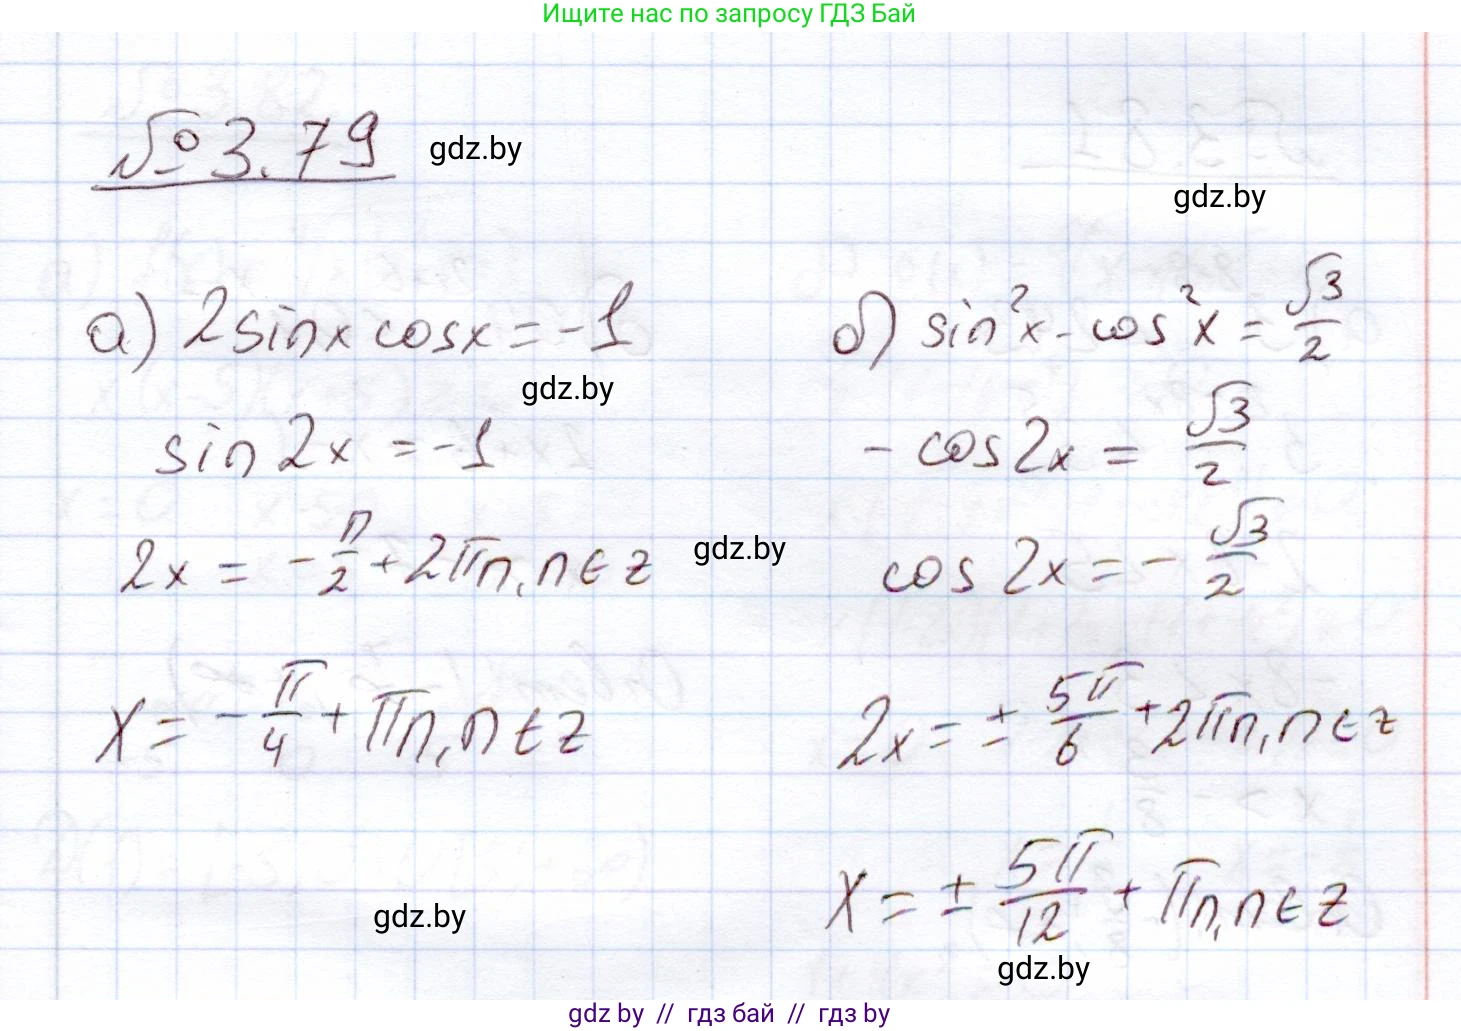 Ищите нас по запросу ГДЗ Бай
№3.79
gdz.by
gdz.by
а) 2sinx cosx = -1
gdz.by
sin 2x = -1
2x = -π/2 + 2πn, n∈z
x = -π/4 + πn, n∈z
gdz.by
б) sin²x - cos²x = √3/2
-cos2x = √3/2
gdz.by
cos 2x = -√3/2
2x = ± 5π/6 + 2πn, n∈z
x = ± 5π/12 + πn, n∈z
gdz.by
gdz by // гдз бай // гдз by